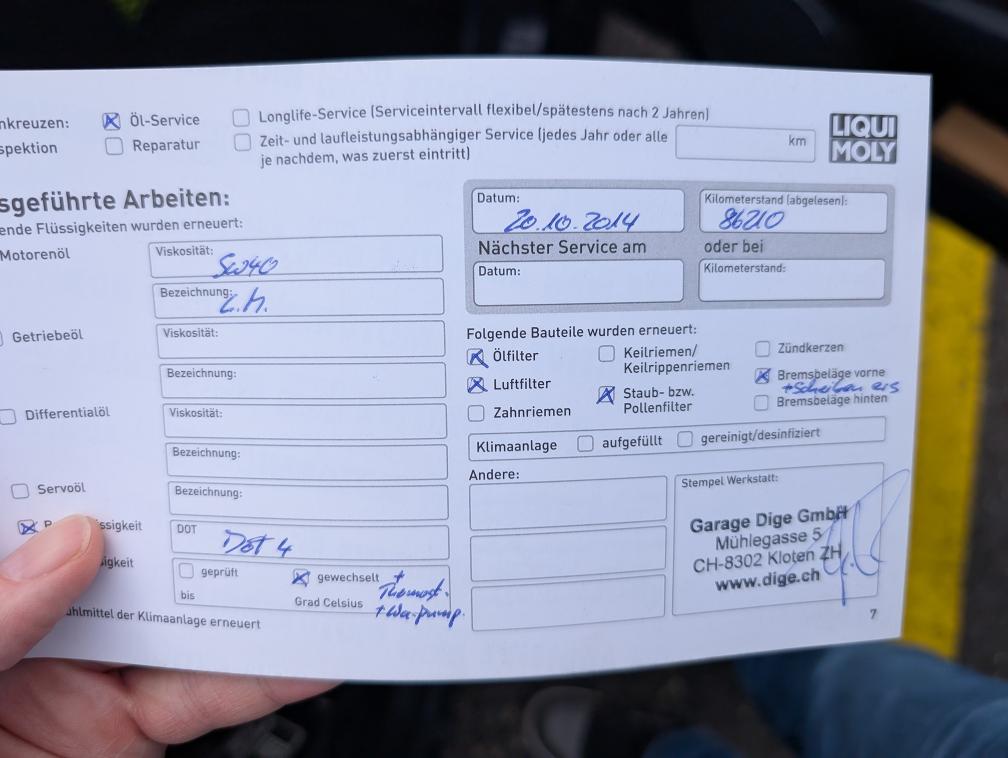 nkreuzen: Öl-Service Longlife-Service (Serviceintervall flexibel/spätestens nach 2 Jahren)
spektion Reparatur Zeit- und laufleistungsabhängiger Service (jedes Jahr oder alle km
je nachdem, was zuerst eintritt)
LIQUI
MOLY
sgeführte Arbeiten:
ende Flüssigkeiten wurden erneuert:
Motorenöl Viskosität: 5W40
Bezeichnung: L.M.
Getriebeöl Viskosität:
Bezeichnung:
Differentialöl Viskosität:
Bezeichnung:
Servoöl Bezeichnung:
ssigkeit DOT Dot 4
igkeit geprüft gewechselt + Thermost.
bis Grad Celsius + Wa-pump.
hlmittel der Klimaanlage erneuert
Datum: 20.10.2014 Kilometerstand (abgelesen): 86210
Nächster Service am oder bei
Datum: Kilometerstand:
Folgende Bauteile wurden erneuert:
Ölfilter Keilriemen/ Zündkerzen
Keilrippenriemen
Luftfilter Staub- bzw. Bremsbeläge vorne
+ Scheiben ers
Zahnriemen Pollenfilter Bremsbeläge hinten
Klimaanlage aufgefüllt gereinigt/desinfiziert
Andere: Stempel Werkstatt:
Garage Dige GmbH
Mühlegasse 5
CH-8302 Kloten ZH
www.dige.ch
7